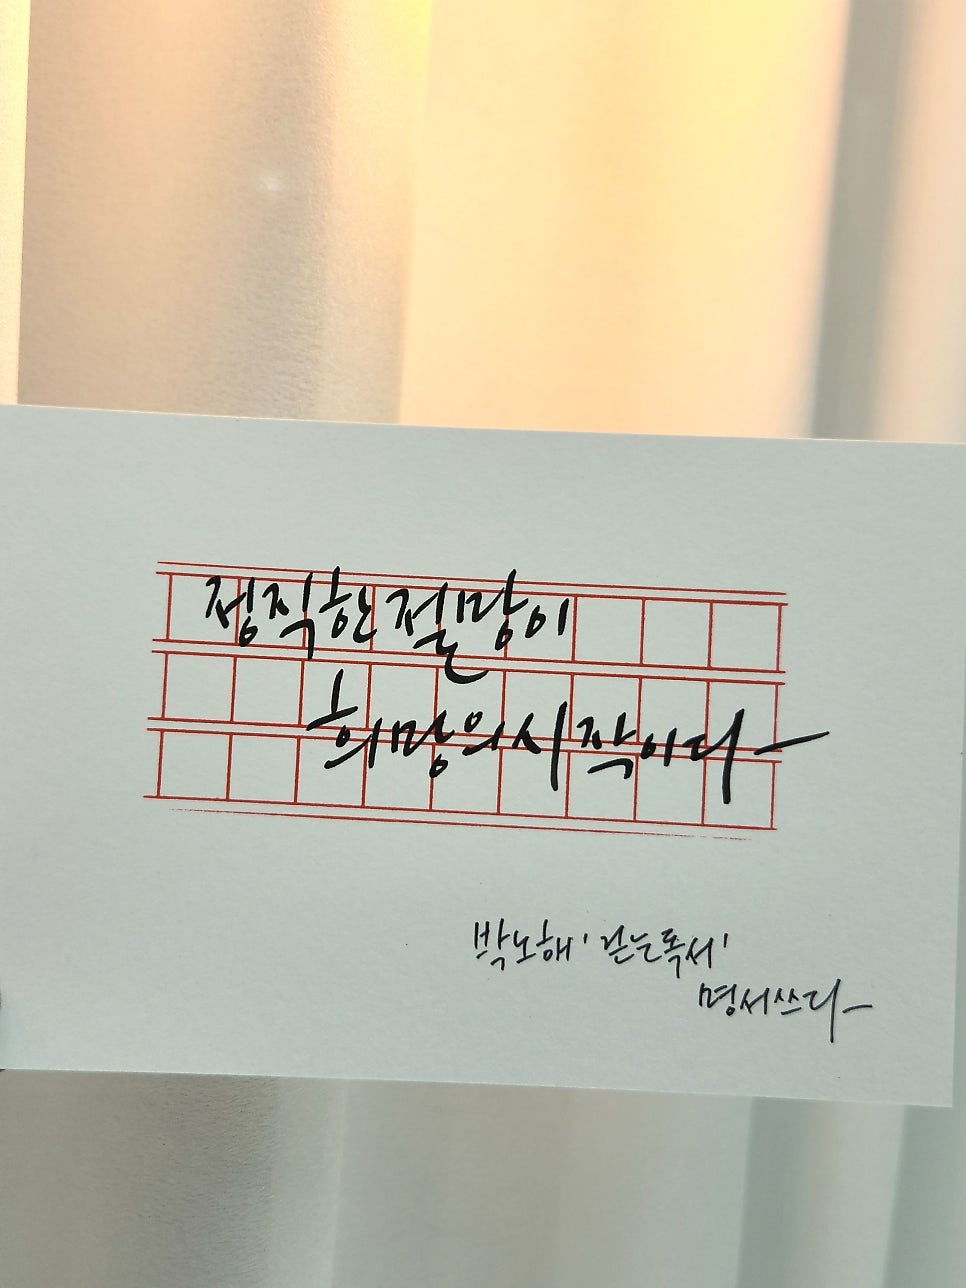 정직한 절망이
희망의 시작이다
박노해 '걷는 독서'
명서쓰다